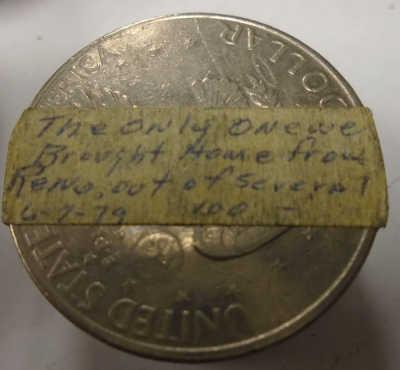 The only one we
Brought Home from
Reno, out of several
6-7-79 100 -
DOLLAR
UNITED STATES